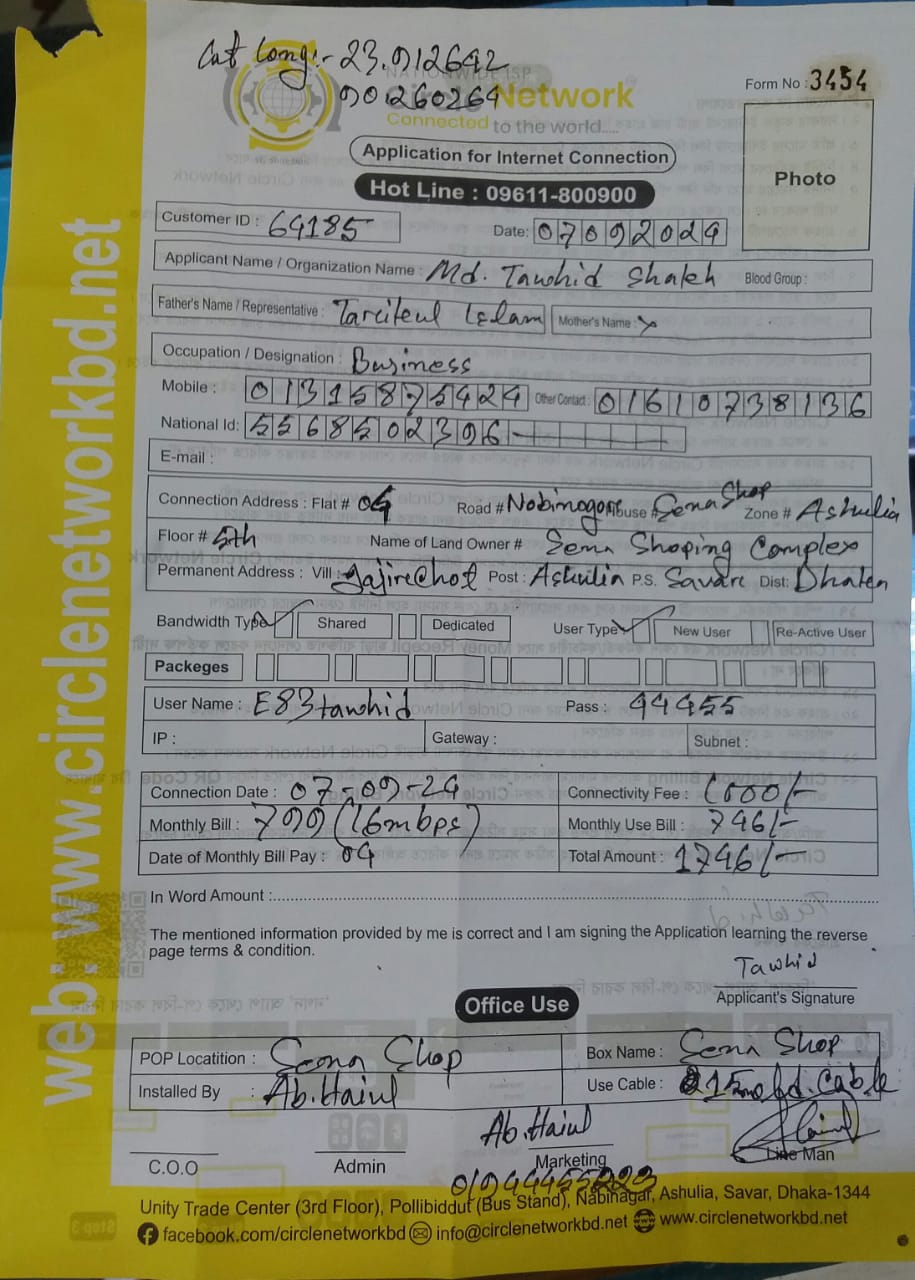 Lat Long:- 23.912642
90260264
NATIONWIDE ISP
Circle Network
Connected to the world.....
Form No : 3454
Application for Internet Connection
Photo
Hot Line : 09611-800900
Customer ID : 64185
Date: 07092024
Applicant Name / Organization Name : Md. Tawhid Shakh Blood Group :
Father's Name / Representative : Islam Mother's Name : x
Occupation / Designation : Business
Mobile : 01315875424 Other Contact : 01610738136
National Id: 5568502396-
E-mail :
Connection Address : Flat # 04 Road # Nobinogor House # Sena Shop Zone # Ashulia
Floor # 5th Name of Land Owner # Sena Shoping Complex
Permanent Address : Vill : Post : Ashulia P.S. Savar Dist: Dhaka
Bandwidth Type Shared Dedicated User Type New User Re-Active User
Packeges
User Name : E83tawhid Pass : 44455
IP : Gateway : Subnet :
Connection Date : 07-09-24 Connectivity Fee : 1000/-
Monthly Bill : 799 (16mbps) Monthly Use Bill : 746/-
Date of Monthly Bill Pay : 04 Total Amount : 1746/-
In Word Amount :
The mentioned information provided by me is correct and I am signing the Application learning the reverse
page terms & condition.
Tawhid
Applicant's Signature
Office Use
POP Locatition : Sena Shop Box Name : Sena Shop
Installed By : Ab. Hairul Use Cable : Cable
Ab. Hairul
C.O.O Admin Marketing Line Man
Unity Trade Center (3rd Floor), Pollibiddut (Bus Stand), Nabinagar, Ashulia, Savar, Dhaka-1344
facebook.com/circlenetworkbd info@circlenetworkbd.net www.circlenetworkbd.net
web: www.circlenetworkbd.net